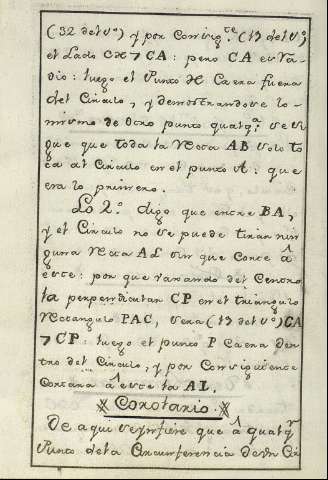 (32 del 1º) y por Consig.te (19 del 1º)
el Lado CX > CA: pero CA es Ra-
dio: luego el Punto X Caera fuera
del Circulo, y demostrandose lo-
mismo de Otro punto qualq.a se si
gue que toda la Recta AB solo to
ca al Circulo en el punto A: que
era lo primero.
Lo 2º digo que entre BA,
y el Circulo no se puede tirar nin
guna Recta AL sin que Corte â
este: por que tirando del Centro
la perpendicular CP en el triangulo
Rectangulo PAC, sera (19 del 1º) CA
> CP: luego el punto P Caera den
tro del Circulo, y por Consiguiente
Cortara â este la AL.
Corolario
De aqui se ynfiere que â qualq.r
Punto dela Circumferencia de un Ci